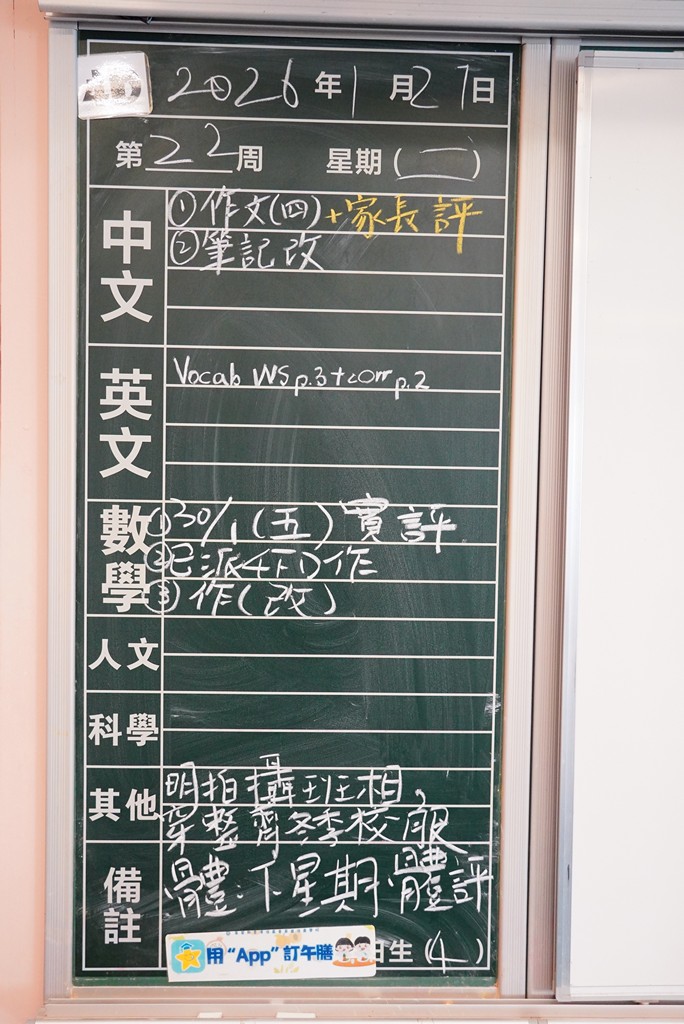 2026年1月27日
第22周 星期(二)
中文
①作文(四)+家長評
②筆記改
英文
Vocab WS p.3+corr p.2
數學
①30/1(五)實評
②已派4下D作
③作(改)
人文
科學
其他
明拍攝班相,
穿整齊冬季校服
備註
體.下星期體評
用“App”訂午膳
生(4)